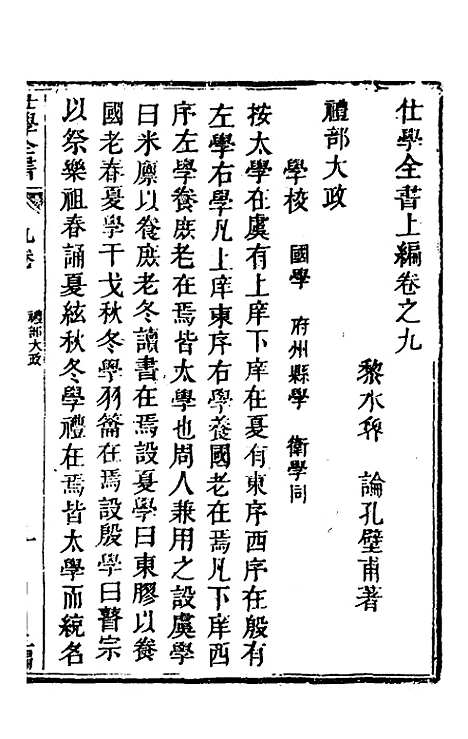 仕學全書上編卷之九
黎水 論孔璧甫著
禮部大政
學校 國學 府州縣學 衛學同
按太學在虞有上庠下庠在夏有東序西序在殷有
左學右學凡上庠東序右學養國老在焉凡下庠西
序左學養庶老在焉皆太學也周人兼用之設虞學
曰米廩以養庶老冬讀書在焉設夏學曰東膠以養
國老春夏學干戈秋冬學羽籥在焉設殷學曰瞽宗
以祭樂祖春誦夏絃秋冬學禮在焉皆太學而統名
仕學全書 九卷 禮部大政 一